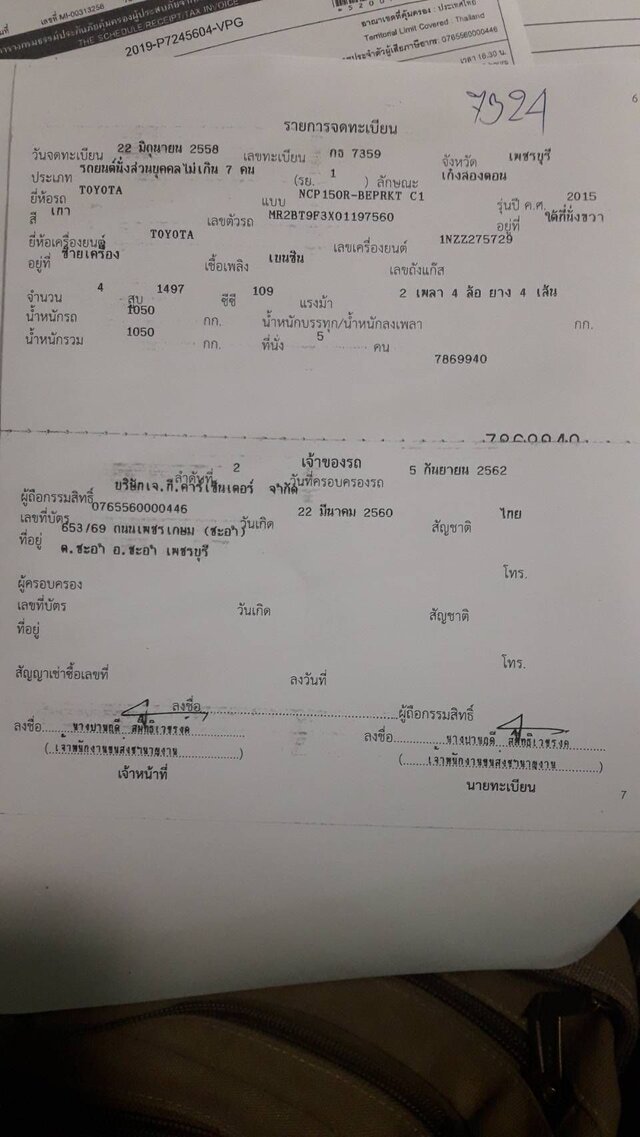 เลขที่ MI-00313258
THE SCHEDULE/RECEIPT/TAX INVOICE
2019-P7245604-VPG
อาณาเขตที่คุ้มครอง : ประเทศไทย
Territorial Limit Covered : Thailand
0765560000446
เวลา 16.30 น.
7324
6
รายการจดทะเบียน
วันจดทะเบียน 22 มิถุนายน 2558 เลขทะเบียน กธ 7359 จังหวัด เพชรบุรี
ประเภท รถยนต์นั่งส่วนบุคคลไม่เกิน 7 คน (รย. 1 ) ลักษณะ เก๋งสองตอน
ยี่ห้อรถ TOYOTA แบบ NCP150R-BEPRKT C1 รุ่นปี ค.ศ. 2015
สี เทา เลขตัวรถ MR2BT9F3X01197560 อยู่ที่ ใต้ที่นั่งขวา
ยี่ห้อเครื่องยนต์ TOYOTA เลขเครื่องยนต์ 1NZZ275729
อยู่ที่ ซ้ายเครื่อง เชื้อเพลิง เบนซิน เลขถังแก๊ส
จำนวน 4 สูบ 1497 ซีซี 109 แรงม้า 2 เพลา 4 ล้อ ยาง 4 เส้น
น้ำหนักรถ 1050 กก. น้ำหนักบรรทุก/น้ำหนักลงเพลา กก.
น้ำหนักรวม 1050 กก. ที่นั่ง 5 คน
7869940
7869940
เจ้าของรถ
ลำดับที่ 2 วันที่ครอบครองรถ 5 กันยายน 2562
ผู้ถือกรรมสิทธิ์ บริษัทเจ.ที.คาร์เซ็นเตอร์ จำกัด
เลขที่บัตร 0765560000446 วันเกิด 22 มีนาคม 2560 สัญชาติ ไทย
ที่อยู่ 653/69 ถนนเพชรเกษม (ชะอำ)
ต.ชะอำ อ.ชะอำ เพชรบุรี
โทร.
ผู้ครอบครอง
เลขที่บัตร วันเกิด สัญชาติ
ที่อยู่
โทร.
สัญญาเช่าซื้อเลขที่ ลงวันที่
ลงชื่อ ผู้ถือกรรมสิทธิ์
ลงชื่อ ลงชื่อ
(เจ้าพนักงานขนส่งชำนาญงาน) (เจ้าพนักงานขนส่งชำนาญงาน)
เจ้าหน้าที่ นายทะเบียน
7